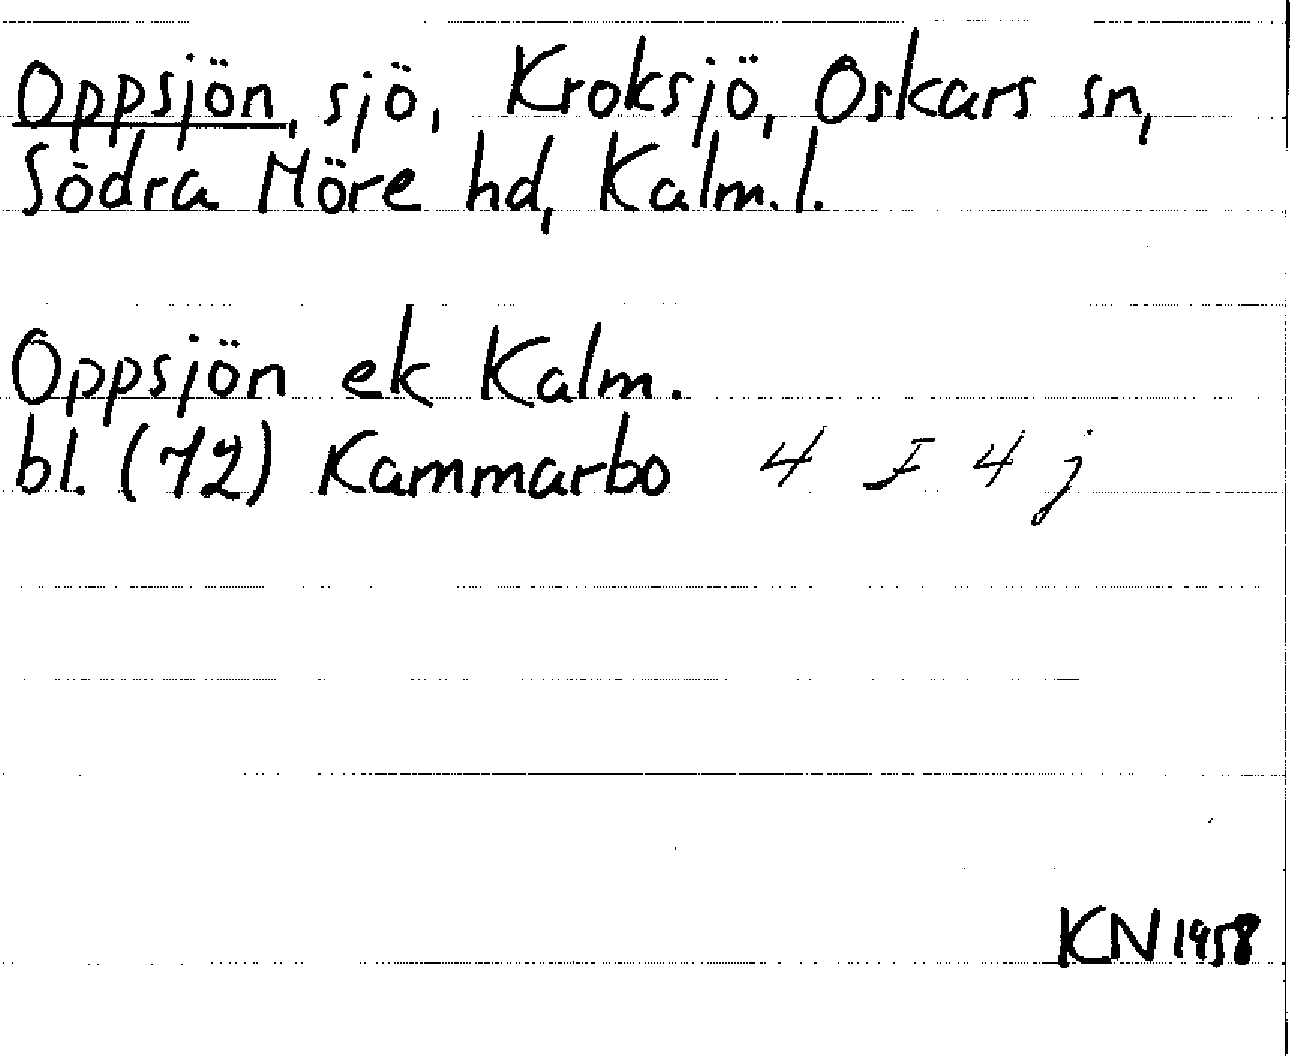 Oppsjön, sjö, Kroksjö, Oskars sn,
Södra Möre hd, Kalm. l.
Oppsjön ek Kalm.
bl. (72) Kammarbo 4 F 4 j
KN 1958